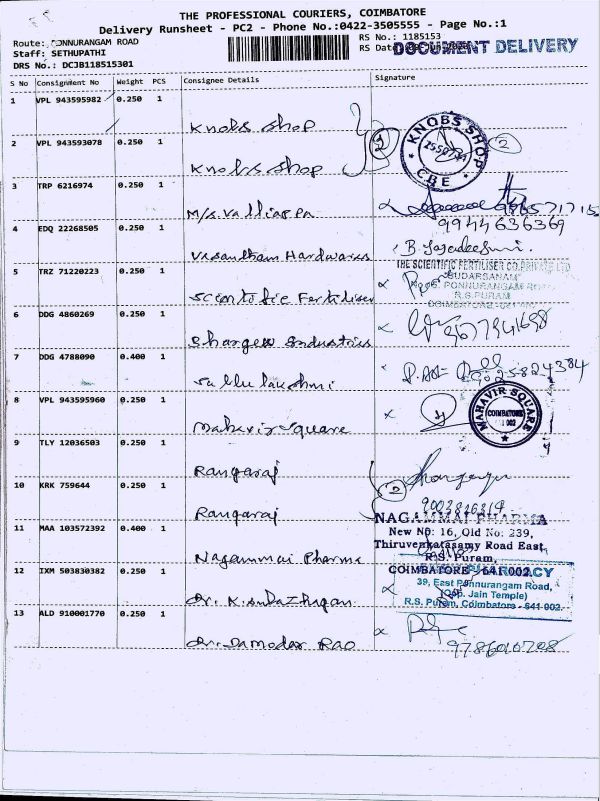 THE PROFESSIONAL COURIERS, COIMBATORE
Delivery Runsheet - PC2 - Phone No.:0422-3505555 - Page No.:1
Route: PONNURANGAM ROAD
RS No.: 1185153
Staff: SETHUPATHI
RS Date
DOCUMENT DELIVERY
DRS No.: DC3B118515301
S No Consignment No Weight PCS Consignee Details Signature
1 VPL 943595982 0.250 1
Knobs shop
KNOBS SHOP
CBE
2
2 VPL 943593078 0.250 1
Knobs shop
3 TRP 6216974 0.250 1
M/s. Valliappa
4 EDQ 22268505 0.250 1
9944636369
Vasantham Hardwares
5 TRZ 71220223 0.250 1
THE SCIENTIFIC FERTILISER CO.PRIVATE LTD
"SUDARSANAM"
PONNURANGAM ROAD
R.S.PURAM
Scientific Fertiliser
6 DDG 4860269 0.250 1
Industries
7 DDG 4788090 0.400 1
9025824384
8 VPL 943595960 0.250 1
Mahavir Square
MAHAVIR SQUARE
COIMBATORE
9 TLY 12036503 0.250 1
Rangaraj
10 KRK 759644 0.250 1
Rangaraj
2
11 MAA 103572392 0.400 1
Nagammai Pharma
NAGAMMAI PHARMA
New No: 16, Old No: 239,
Thiruvenkatasamy Road East,
R.S. Puram,
COIMBATORE - 641 002.
12 IXM 503830382 0.250 1
39, East Ponnurangam Road,
(Opp. Jain Temple)
R.S. Puram, Coimbatore - 641 002.
13 ALD 910001770 0.250 1
Dr. Damodar Rao